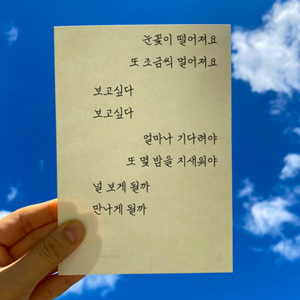 눈꽃이 떨어져요
또 조금씩 멀어져요
보고싶다
보고싶다
얼마나 기다려야
또 몇 밤을 지새워야
널 보게 될까
만나게 될까